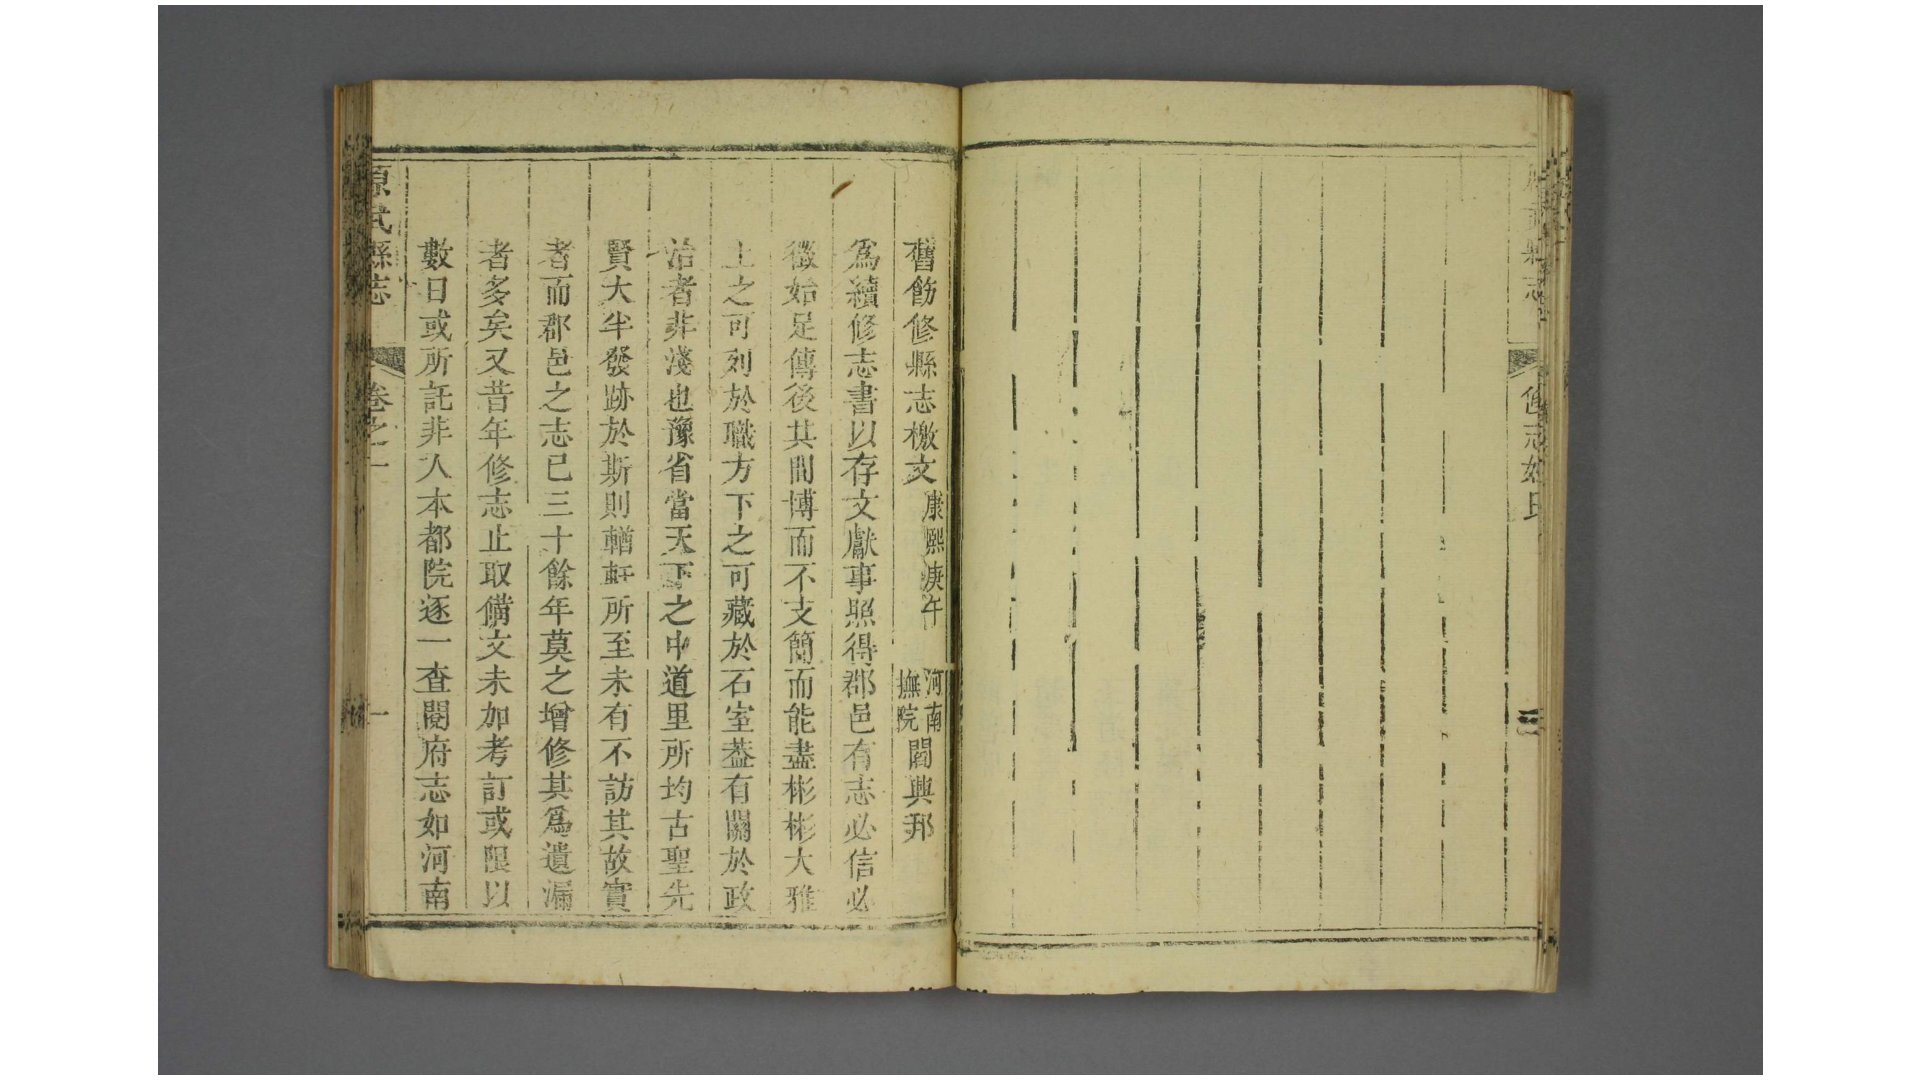 原武縣志 修志姓氏
舊飭修縣志檄文 康熙庚午 河南撫院 閻興邦
為續修志書以存文獻事照得郡邑有志必信必
徵始足傳後其間博而不支簡而能盡彬彬大雅
上之可列於職方下之可藏於石室葢有關於政
治者非淺也豫省當天下之中道里所均古聖先
賢大半發跡於斯則輶軒所至未有不訪其故實
者而郡邑之志已三十餘年莫之增修其為遺漏
者多矣又昔年修志止取備文未加考訂或限以
數日或所託非人本都院逐一查閱府志如河南
原武縣志 卷之一 一